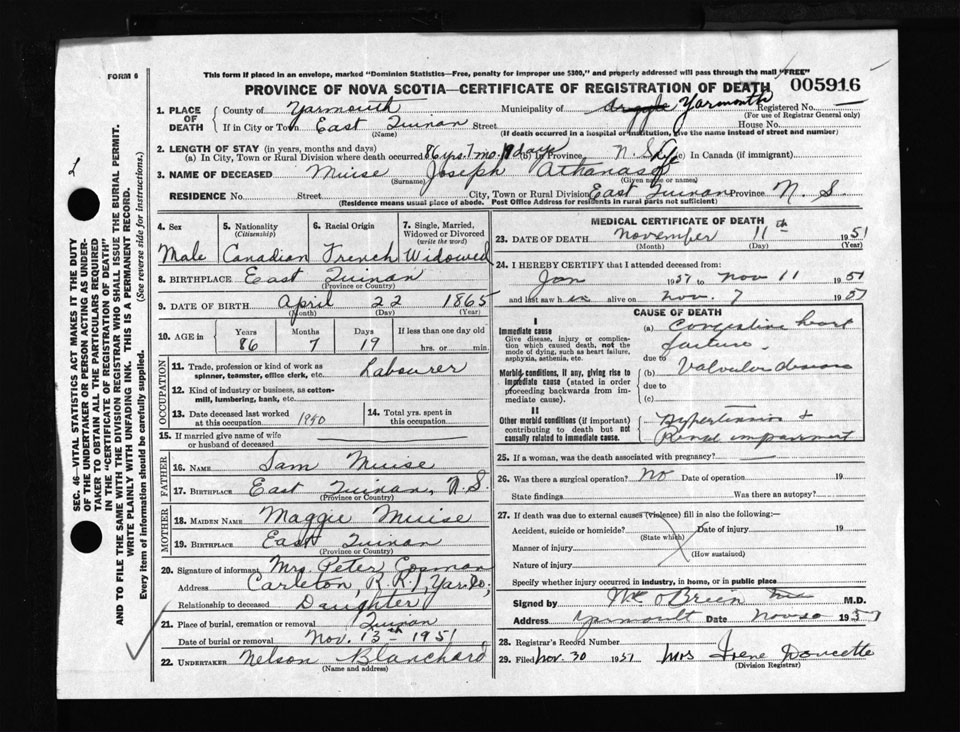 FORM 6
This form if placed in an envelope, marked "Dominion Statistics—Free, penalty for improper use $300," and properly addressed will pass through the mail "FREE"
PROVINCE OF NOVA SCOTIA—CERTIFICATE OF REGISTRATION OF DEATH 005916
1. PLACE OF DEATH
County of Yarmouth Municipality of Argyle Yarmouth Registered No.
(For use of Registrar General only)
If in City or Town East Quinan Street House No.
(Name) (If death occurred in a hospital or institution, give the name instead of street and number)
2. LENGTH OF STAY (in years, months and days)
(a) In City, Town or Rural Division where death occurred 86 yrs. 7 mo. 19 days (b) In Province N.S. (c) In Canada (if immigrant)
3. NAME OF DECEASED Muise Joseph Athanase
(Surname) (Given name or names)
RESIDENCE No. Street City, Town or Rural Division East Quinan Province N.S.
(Residence means usual place of abode. Post Office Address for residents in rural parts not sufficient)
4. Sex 5. Nationality (Citizenship) 6. Racial Origin 7. Single, Married, Widowed or Divorced (write the word)
Male Canadian French Widowed
8. BIRTHPLACE East Quinan
(Province or Country)
9. DATE OF BIRTH April 22 1865
(Month) (Day) (Year)
10. AGE in Years Months Days If less than one day old
86 7 19 hrs. or min.
OCCUPATION
11. Trade, profession or kind of work as spinner, teamster, office clerk, etc. Labourer
12. Kind of industry or business, as cotton-mill, lumbering, bank, etc.
13. Date deceased last worked at this occupation 1940 14. Total yrs. spent in this occupation
15. If married give name of wife or husband of deceased
FATHER
16. NAME Sam Muise
17. BIRTHPLACE East Quinan, N.S.
(Province or Country)
MOTHER
18. MAIDEN NAME Maggie Muise
19. BIRTHPLACE East Quinan
(Province or Country)
20. Signature of informant Mrs. Peter
Address Carleton, R.R.1, Yar. Co,
Relationship to deceased Daughter
21. Place of burial, cremation or removal Quinan
Date of burial or removal Nov. 13th 1951
22. UNDERTAKER Nelson Blanchard
(Name and address)
MEDICAL CERTIFICATE OF DEATH
23. DATE OF DEATH November 11th 1951
(Month) (Day) (Year)
24. I HEREBY CERTIFY that I attended deceased from
Jan 1937 to Nov 11 1951
and last saw h im alive on Nov. 7 1951
CAUSE OF DEATH
I
Immediate cause
Give disease, injury or complication which caused death, not the mode of dying, such as heart failure, asphyxia, asthenia, etc.
(a) Congestive heart failure.
due to
Morbid conditions, if any, giving rise to immediate cause (stated in order proceeding backwards from immediate cause).
(b) Valvular disease
due to
(c)
II
Other morbid conditions (if important) contributing to death but not causally related to immediate cause.
Hypertension & Renal impairment
25. If a woman, was the death associated with pregnancy?
26. Was there a surgical operation? No Date of operation 19
State findings Was there an autopsy?
27. If death was due to external causes (violence) fill in also the following:—
Accident, suicide or homicide? Date of injury 19
(State which)
Manner of injury
(How sustained)
Nature of injury
Specify whether injury occurred in industry, in home, or in public place
Signed by O'Brien M.D.
Address Yarmouth Date Nov 20 1951
28. Registrar's Record Number
29. Filed Nov. 30 1951 Mrs Irene Doucette
(Division Registrar)
SEC. 46—VITAL STATISTICS ACT MAKES IT THE DUTY
OF THE UNDERTAKER OR PERSON ACTING AS UNDER-
TAKER TO OBTAIN ALL THE PARTICULARS REQUIRED
IN THE "CERTIFICATE OF REGISTRATION OF DEATH"
AND TO FILE THE SAME WITH THE DIVISION REGISTRAR WHO SHALL ISSUE THE BURIAL PERMIT.
WRITE PLAINLY WITH UNFADING INK. THIS IS A PERMANENT RECORD.
Every item of information should be carefully supplied. (See reverse side for instructions).